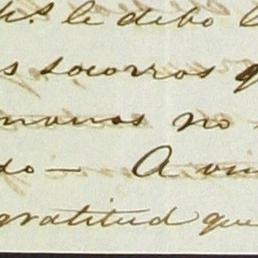 le debo
socorros
manos no
do — A
gratitud que